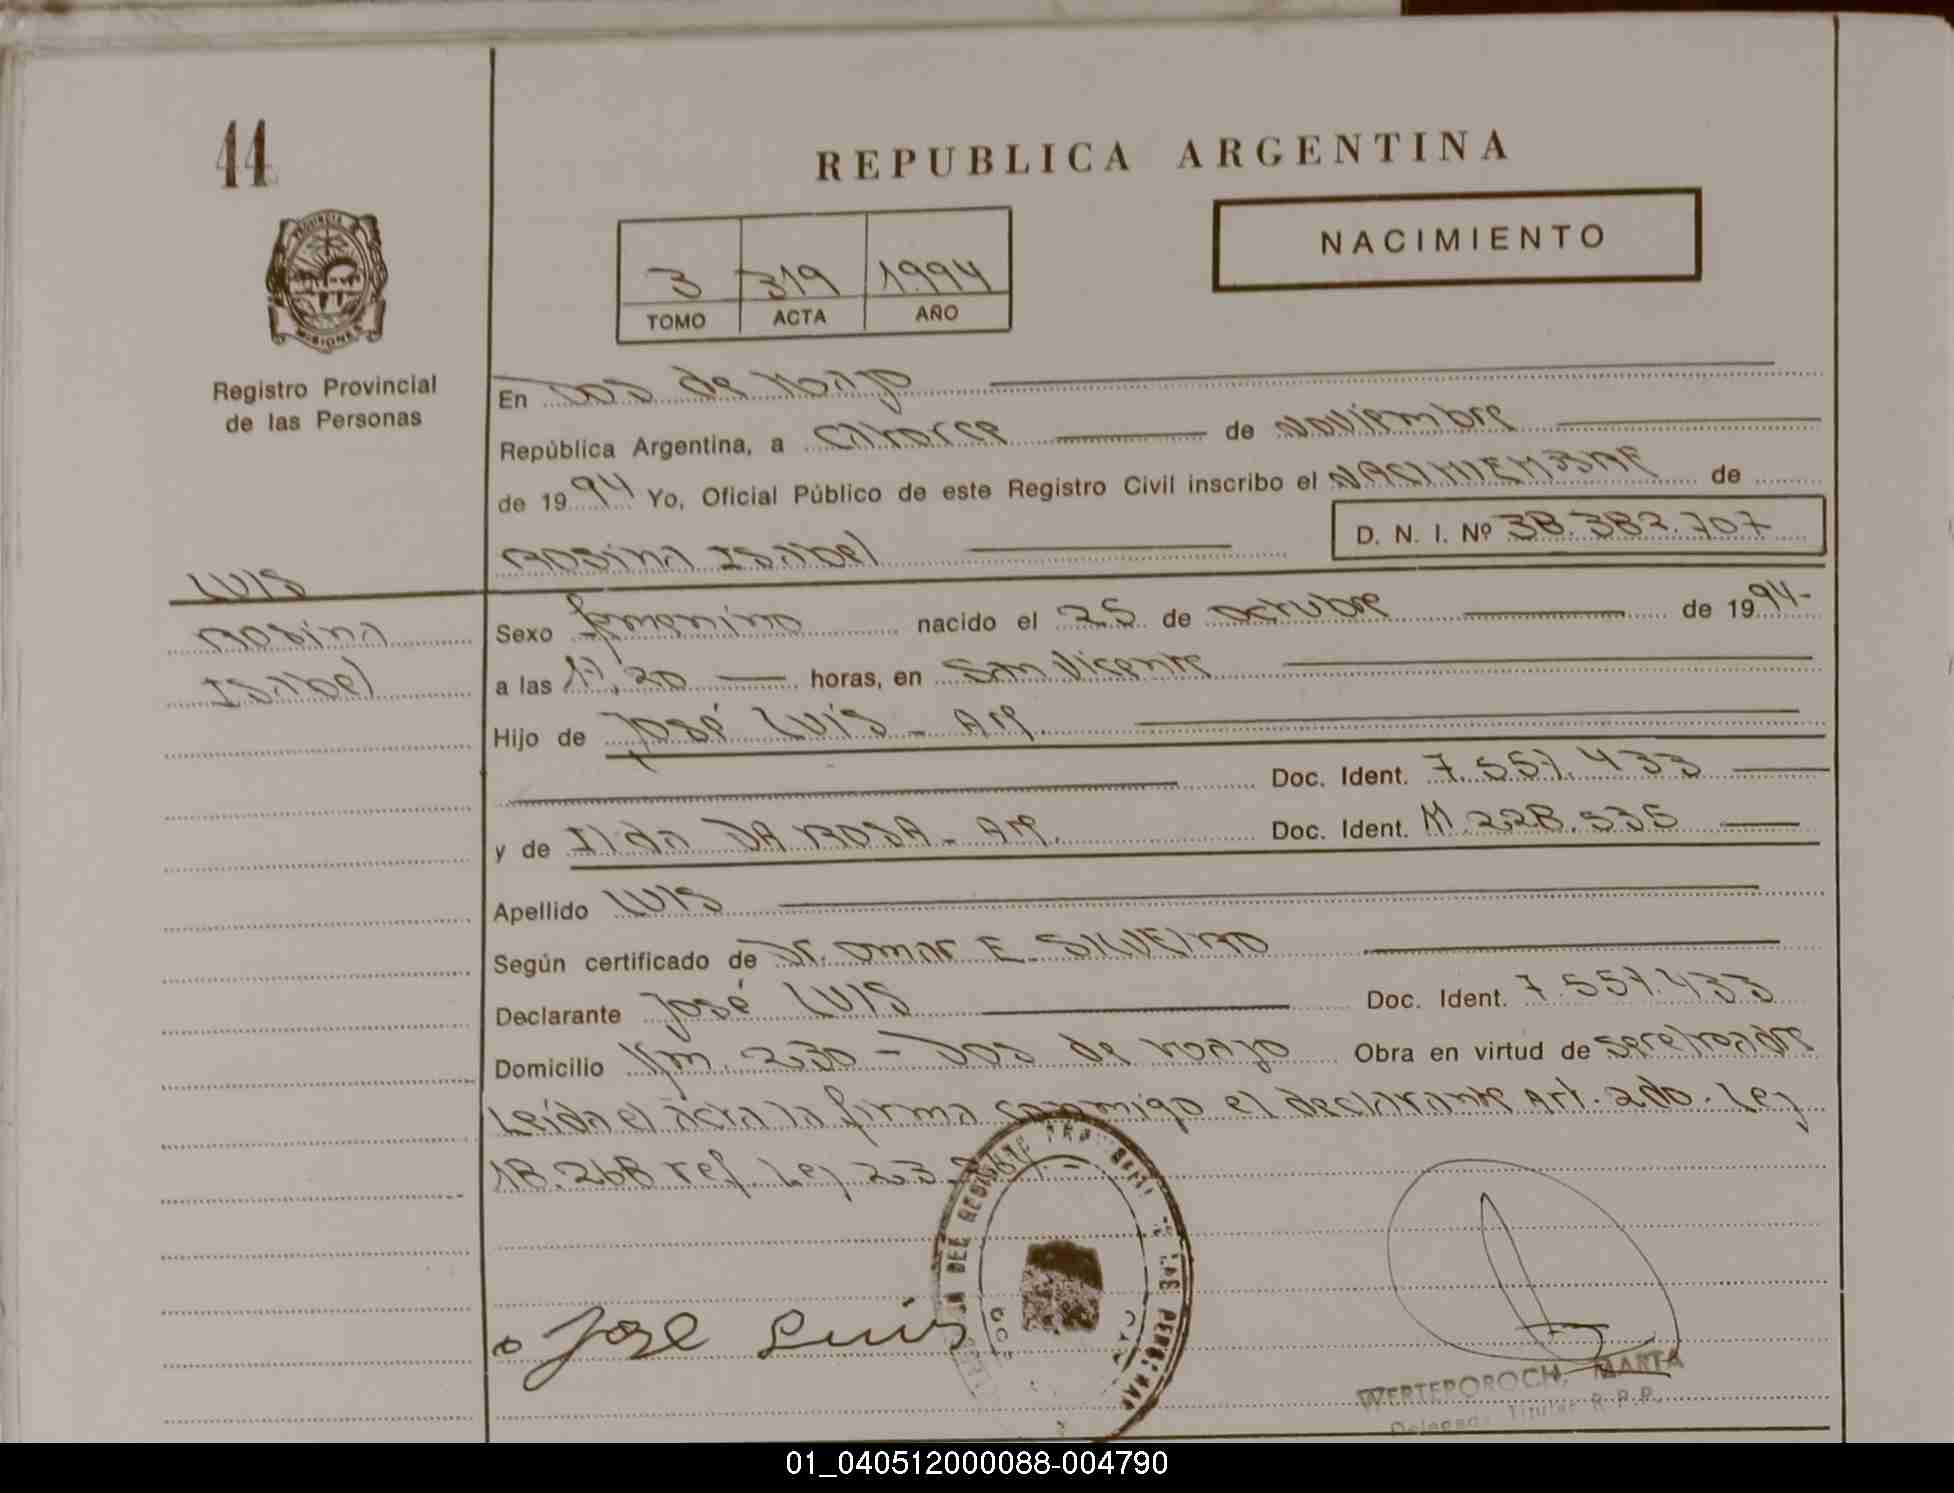 44
REPUBLICA ARGENTINA
NACIMIENTO
3 319 1994
TOMO ACTA AÑO
PROVINCIA
MISIONES
Registro Provincial
de las Personas
En Dos de Mayo
República Argentina, a catorce de Noviembre
de 1994 Yo, Oficial Público de este Registro Civil inscribo el de
D. N. I. Nº 38.382.707
Rosina Isabel
LUIS
Rosina
Isabel
Sexo femenino nacido el 25 de octubre de 1994-
a las 17,20 horas, en San Vicente
Hijo de José LUIS - Arg.
Doc. Ident. 7.557.433
y de Ilda DA ROSA - Arg. Doc. Ident. M 228.535
Apellido LUIS
Según certificado de Dr. Omar E. SILVEIRO
Declarante José LUIS Doc. Ident. 7.557.433
Domicilio Km. 230 - Dos de Mayo Obra en virtud de ser el padre
Leída el acta la firma conmigo el declarante Art. 2do. Ley
18.268 ref. Ley 23.
Jose Luis
WERTEPOROCH, MARTA
Titular R.P.P.
01_040512000088-004790